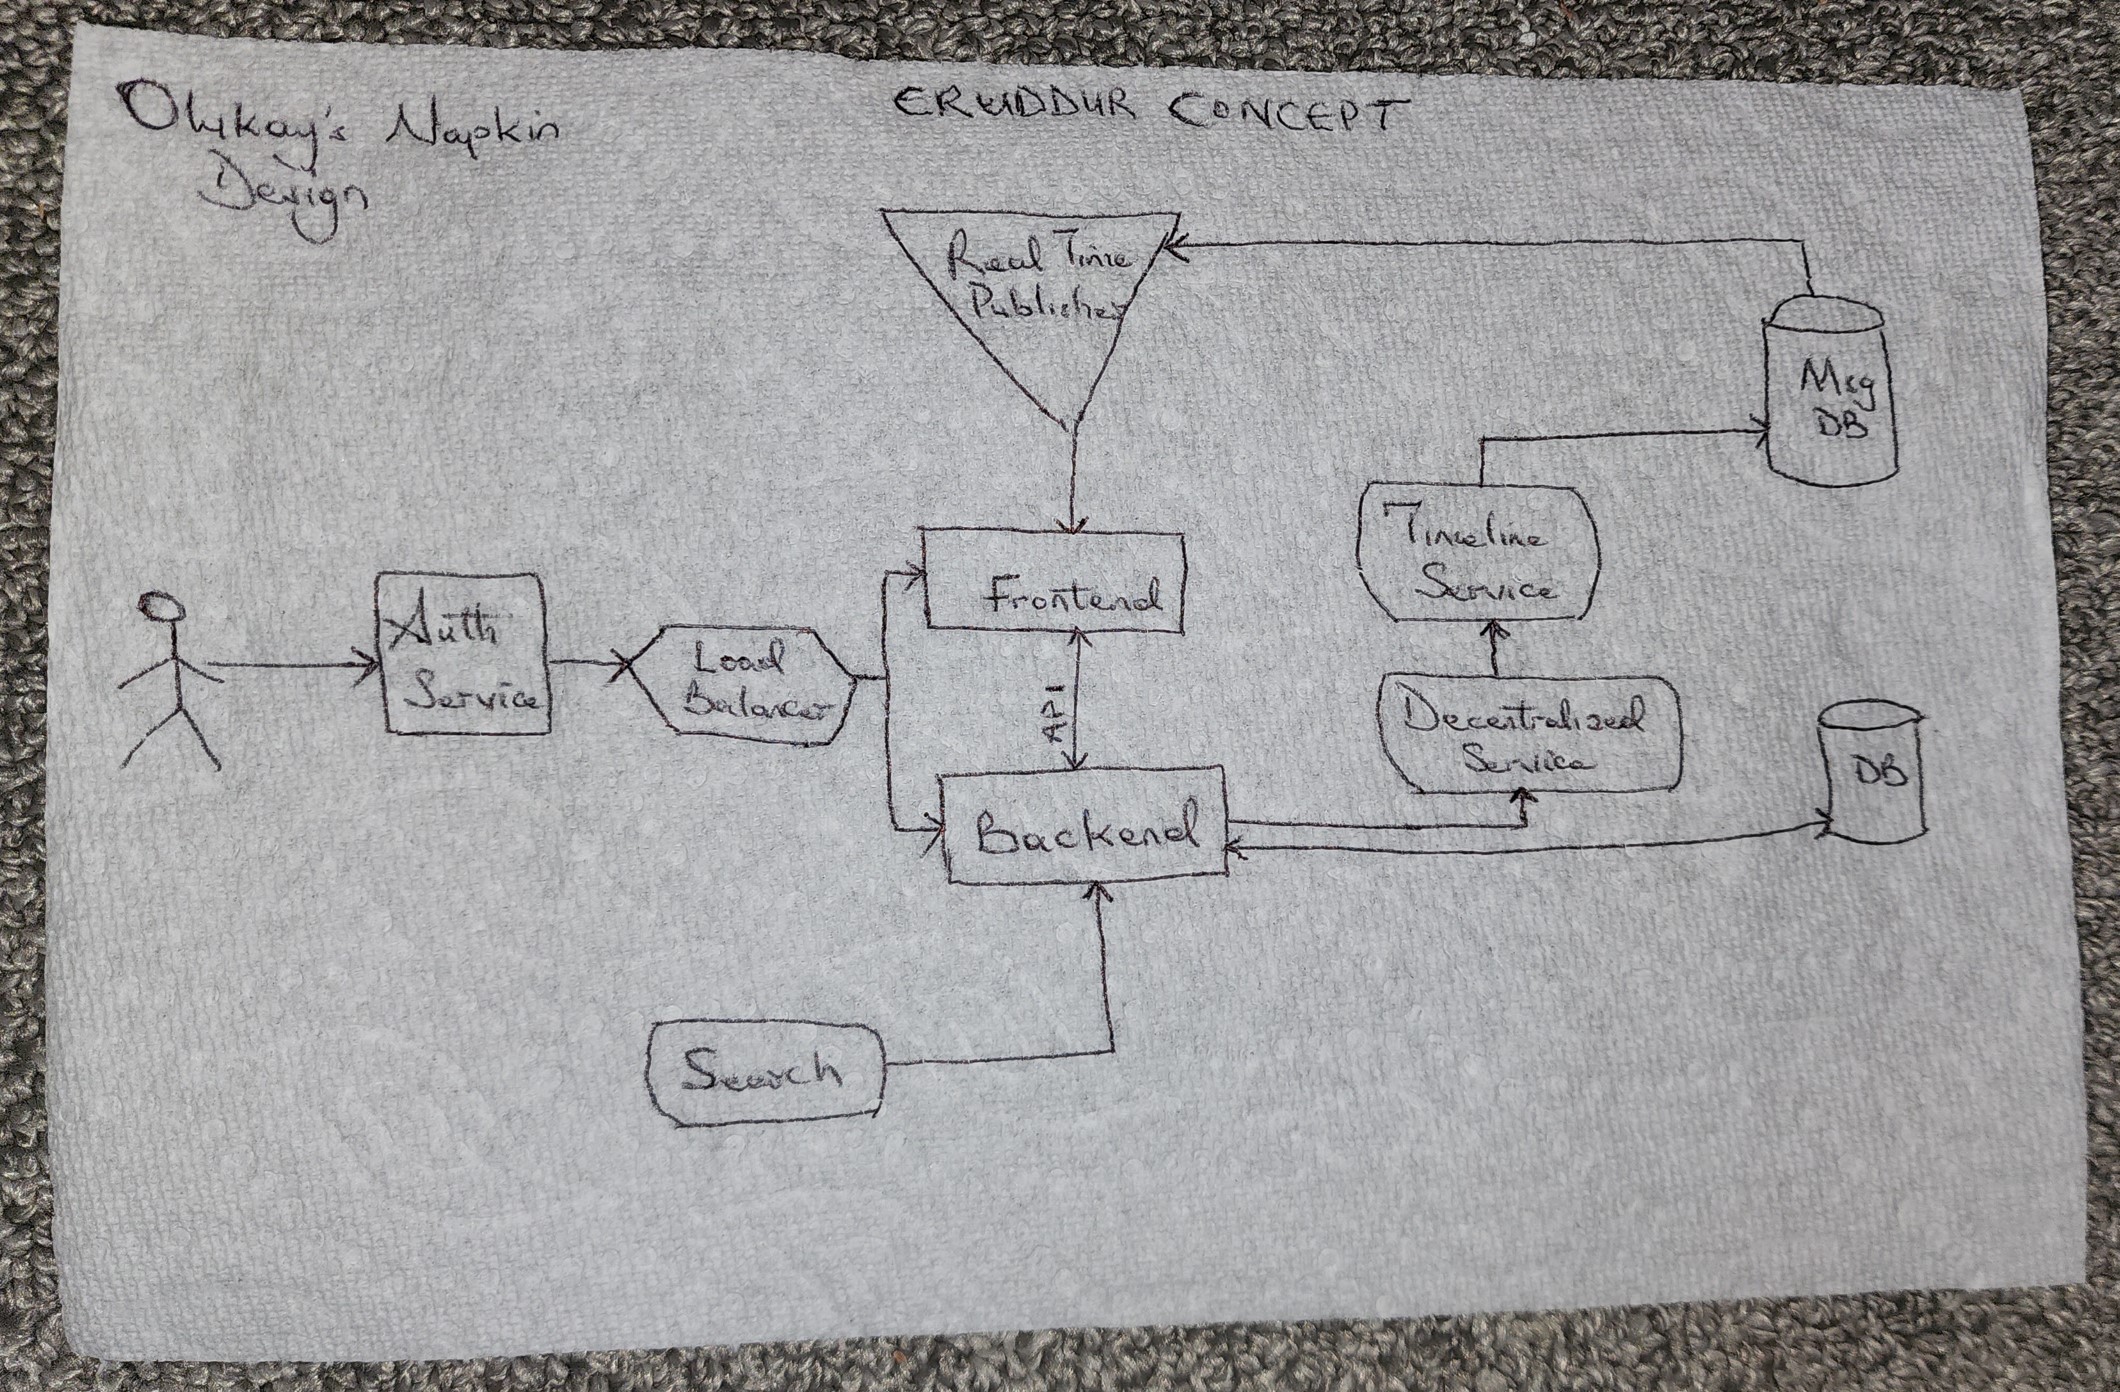 Olukay's Napkin
Design
CRUDDUR CONCEPT
Real Time
Publisher
Msg
DB
Timeline
Service
Frontend
Auth
Service
Load
Balancer
API
Decentralized
Service
DB
Backend
Search